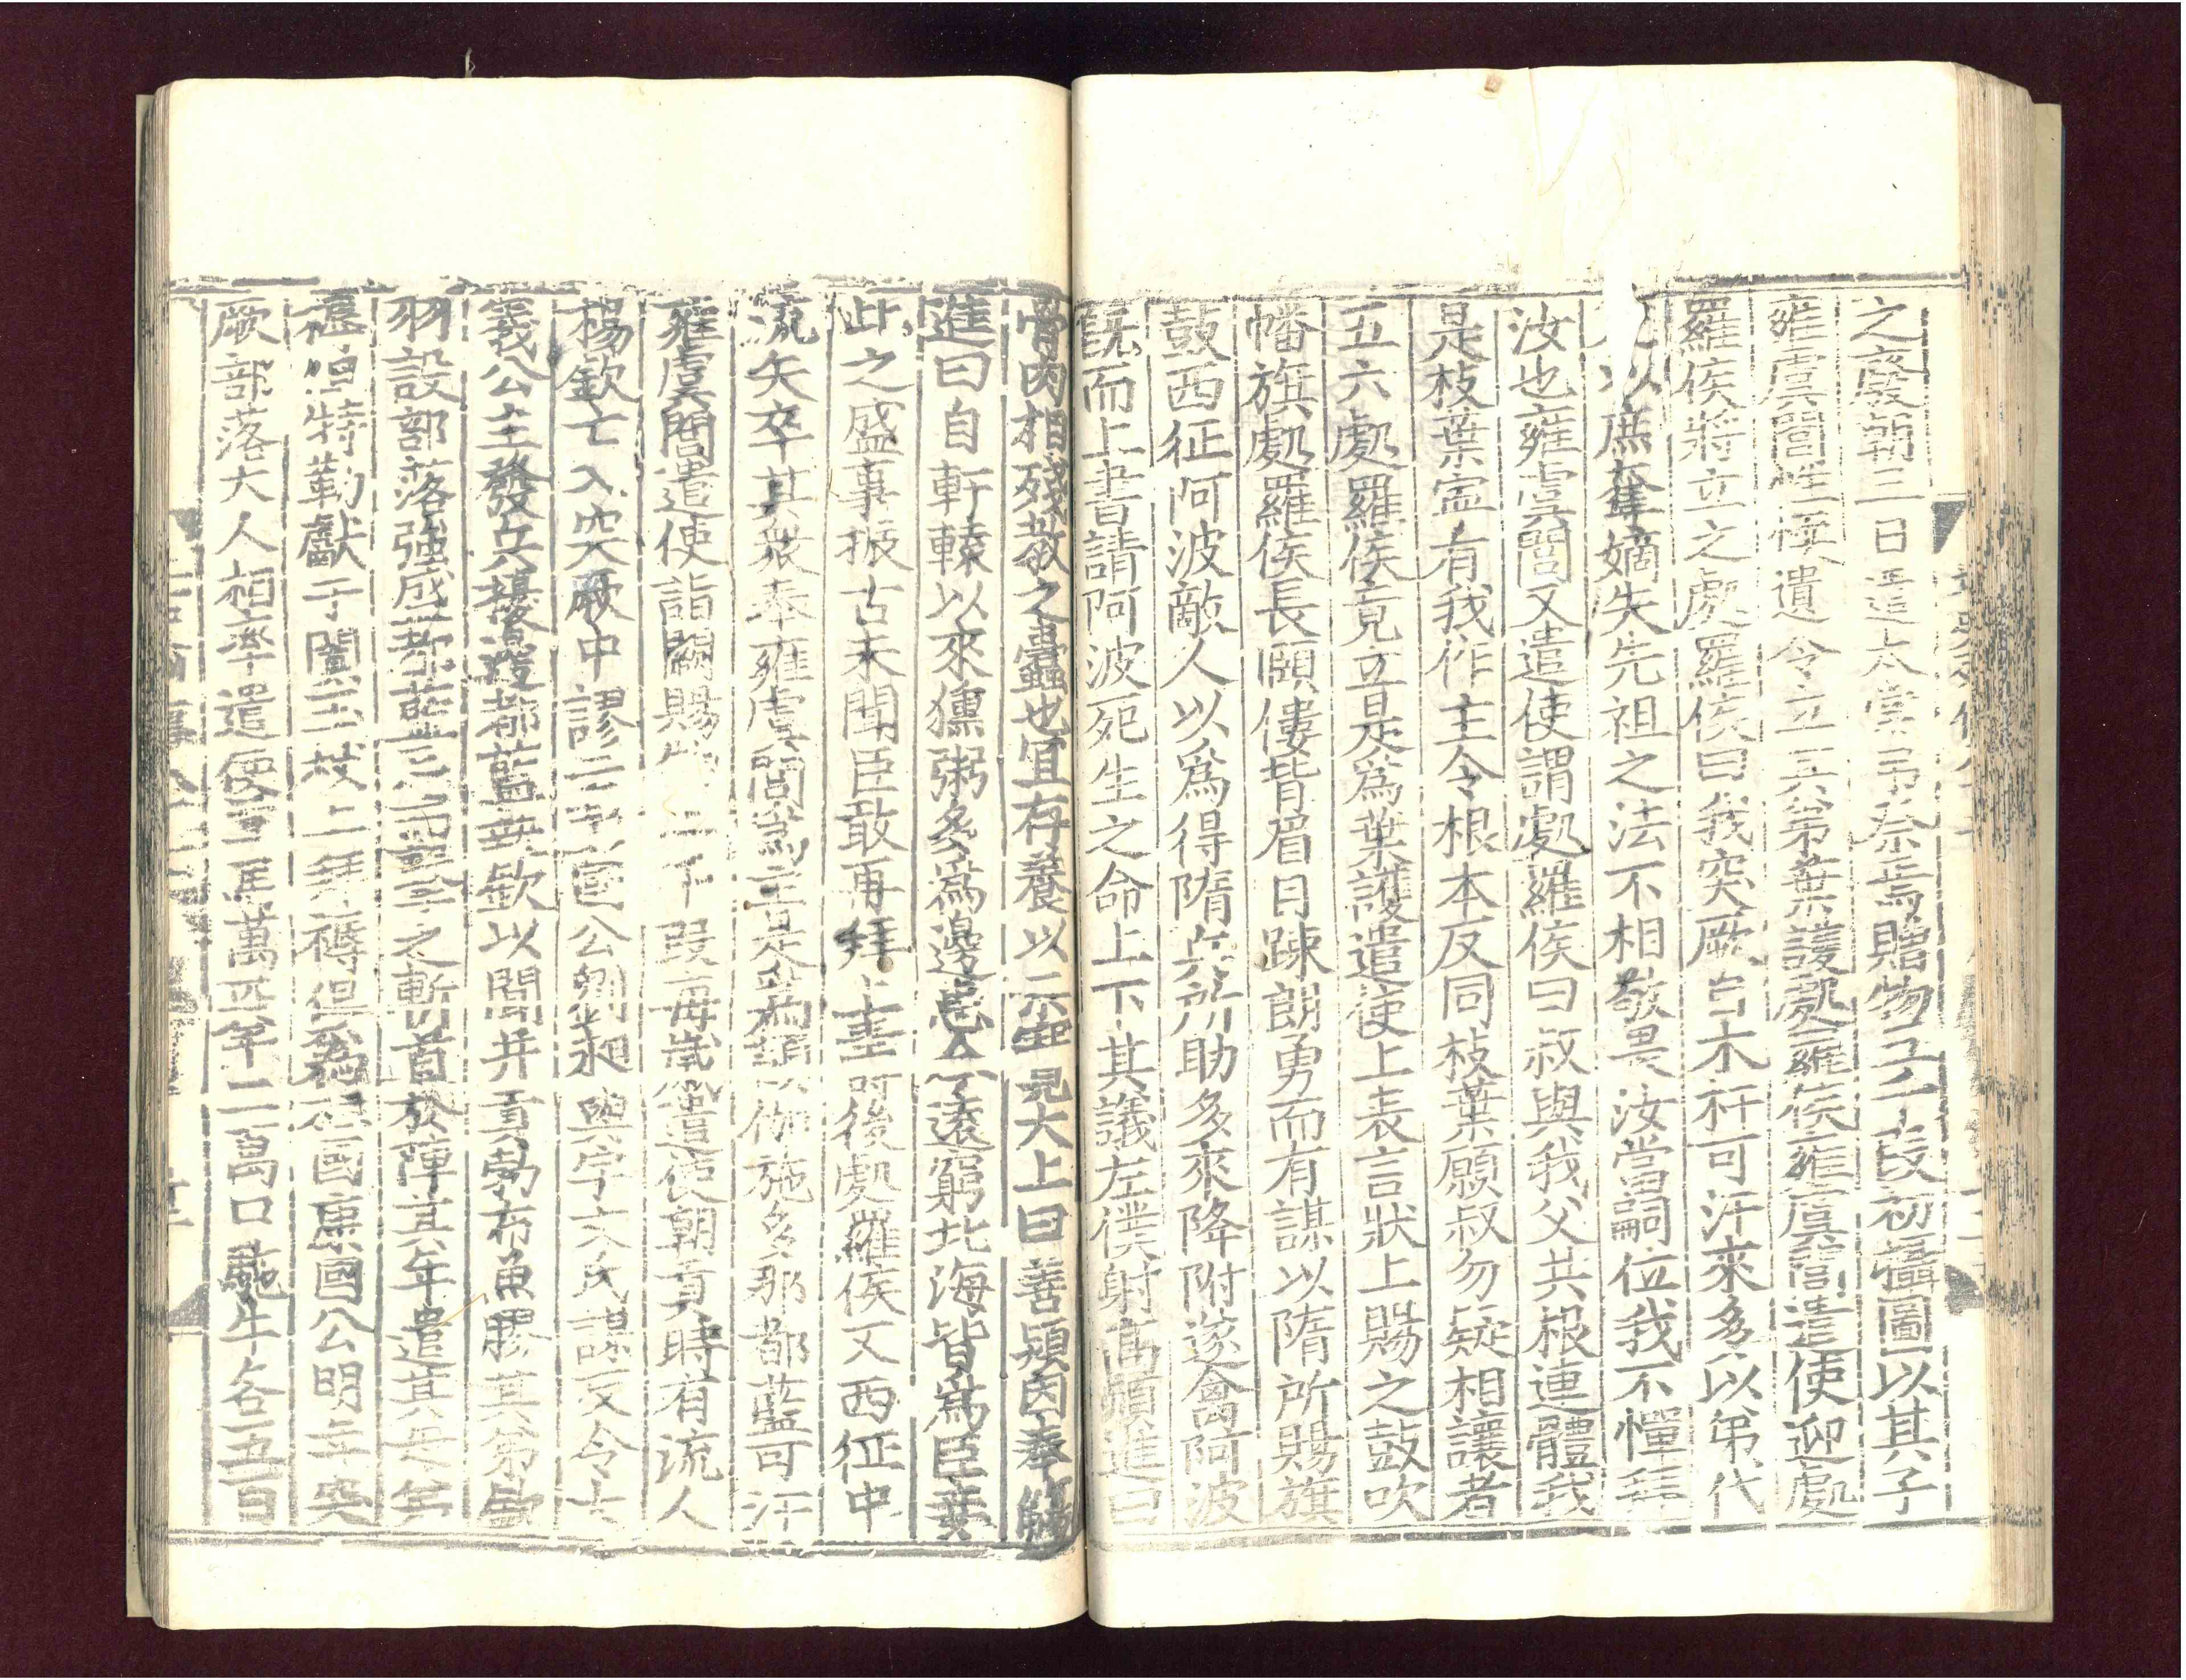 之廢朝三日遣太常弔祭焉贈物五千段初攝圖以其子
雍虞閭性懦遺令立其弟葉護處羅侯雍虞閭遣使迎處
羅侯將立之處羅侯曰我突厥自木杆可汗來多以弟代
兄以庶奪嫡失先祖之法不相敬畏汝當嗣位我不憚拜
汝也雍虞閭又遣使謂處羅侯曰叔與我父共根連體我
是枝葉寧有我作主令根本反同枝葉願叔勿疑相讓者
五六處羅侯竟立是爲葉護遣使上表言狀上賜之鼓吹
幡旗處羅侯長頤僂背眉目踈朗勇而有謀以隋所賜旗
鼓西征阿波敵人以爲得隋兵所助多來降附遂禽阿波
既而上書請阿波死生之命上下其議左僕射高熲進曰
骨肉相殘教之蠹也宜存養以示寬大上曰善熲因奉觴
進曰自軒轅以來獯粥多爲邊患今遠窮北海皆爲臣妾
此之盛事振古未聞臣敢再拜上壽後處羅侯又西征中
流矢卒其衆奉雍虞閭爲主是爲頡伽施多那都藍可汗
雍虞閭遣使詣闕賜物三千段每歲遣使朝貢時有流人
楊欽亡入突厥中謬云彭國公劉昶與宇文氏謀反令大
義公主發兵擾邊都藍執欽以聞并貢勃布魚膠其弟欽
羽設部落強盛都藍忌而擊之斬首於陣其年遣其母弟
褥但特勤獻于闐玉杖上拜褥但爲柱國康國公明年突
厥部落大人相率遣使貢馬萬匹羊二萬口駝牛各五百